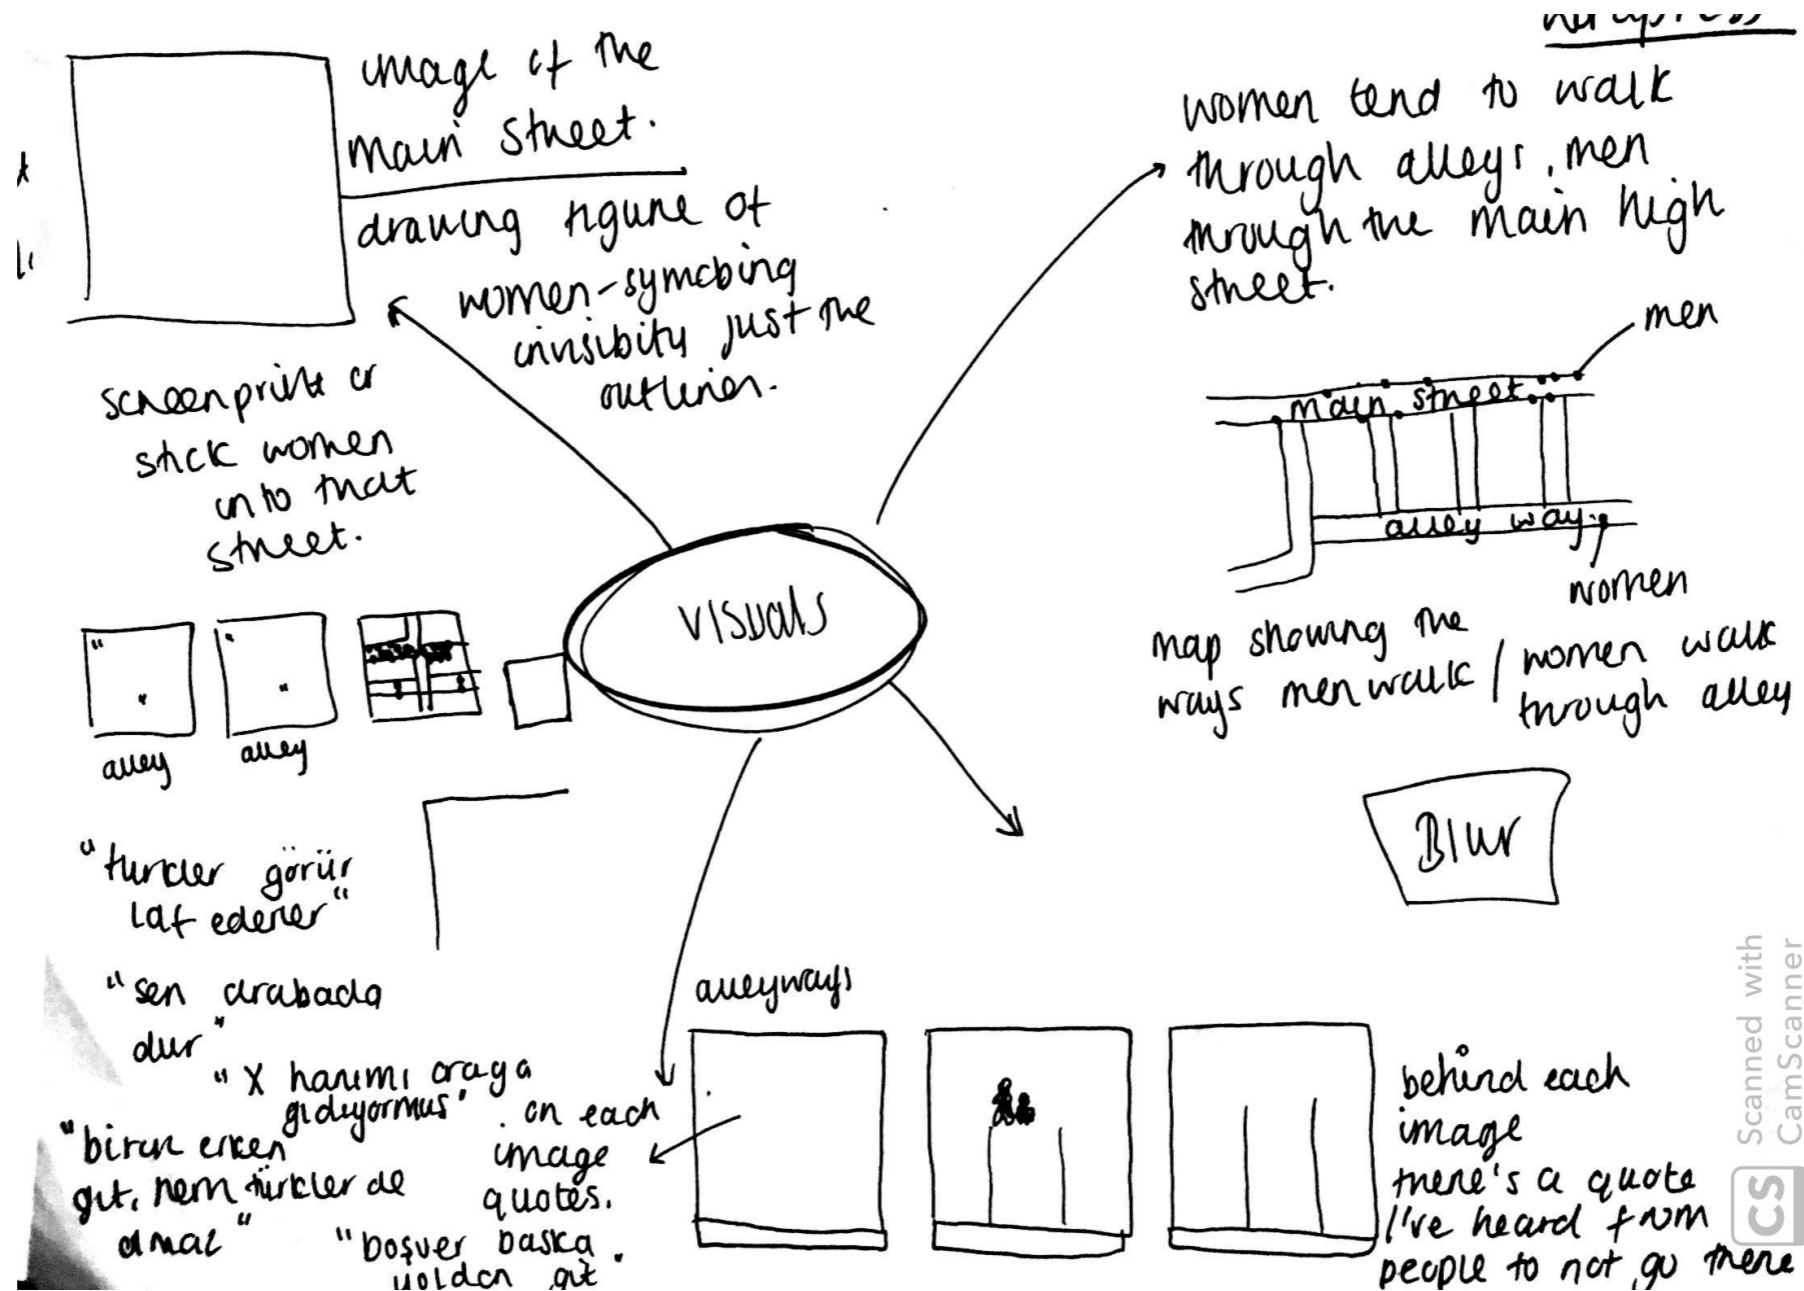 image of the
main street.
drawing figure of
women-symcbing
invisibity just the
outlines.
screenprint or
stick women
into that
street.
women tend to walk
through alleys, men
through the main high
street.
men
main street
alley way
women
map showing the
ways men walk / women walk
through alley
visuals
alley
alley
Blur
"turkler görür
laf ederler"
"sen arabada
dur"
"X hanımı oraya
gidiyormus"
"biraz erken
git, hem türkler de
olmaz"
"boşver baska
yoldan git"
alleyways
on each
image
quotes.
behind each
image
there's a quote
I've heard from
people to not go there
Scanned with
CamScanner
CS